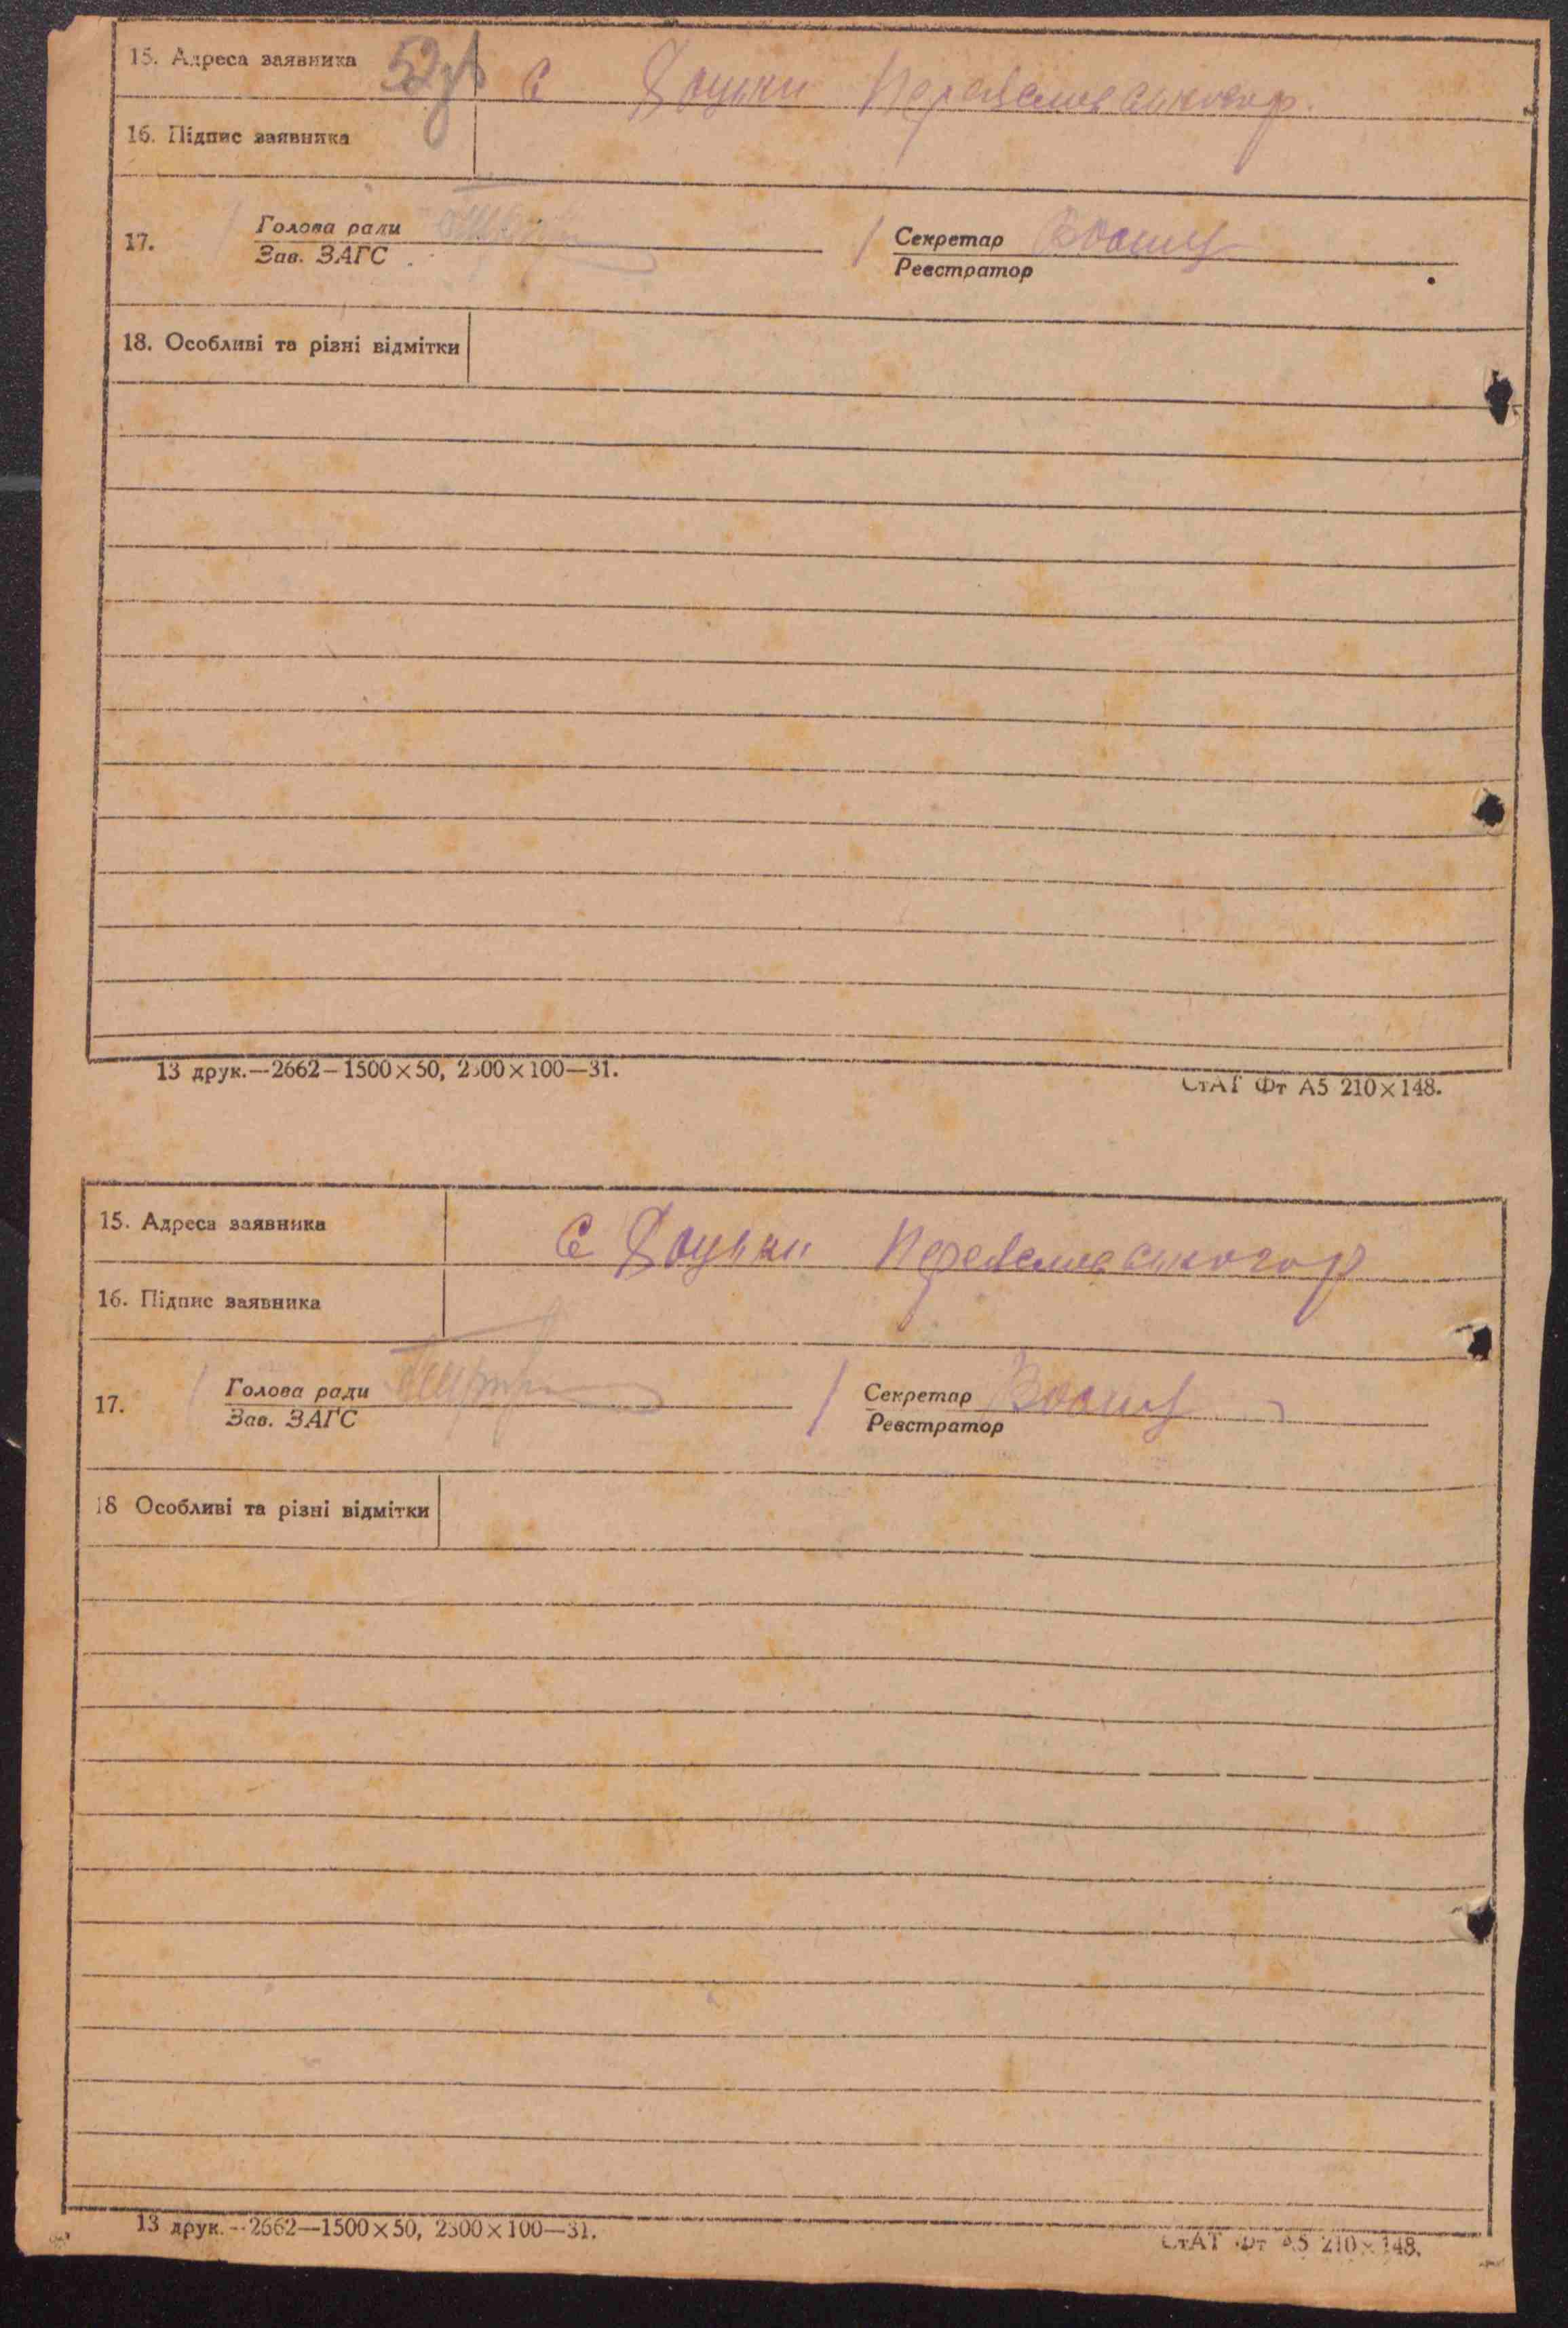 15. Адреса заявника 52зв С Доцьки Переяславського р.
16. Підпис заявника
17. Голова ради Секретар
Зав. ЗАГС Реєстратор
18. Особливі та різні відмітки
13 друк.—2662—1500×50, 2300×100—31. СтАТ Фт А5 210×148.
15. Адреса заявника С Доцьки Переяславського р
16. Підпис заявника
17. Голова ради Секретар
Зав. ЗАГС Реєстратор
18 Особливі та різні відмітки
13 друк.—2662—1500×50, 2300×100—31. СтАТ Фт А5 210×148.